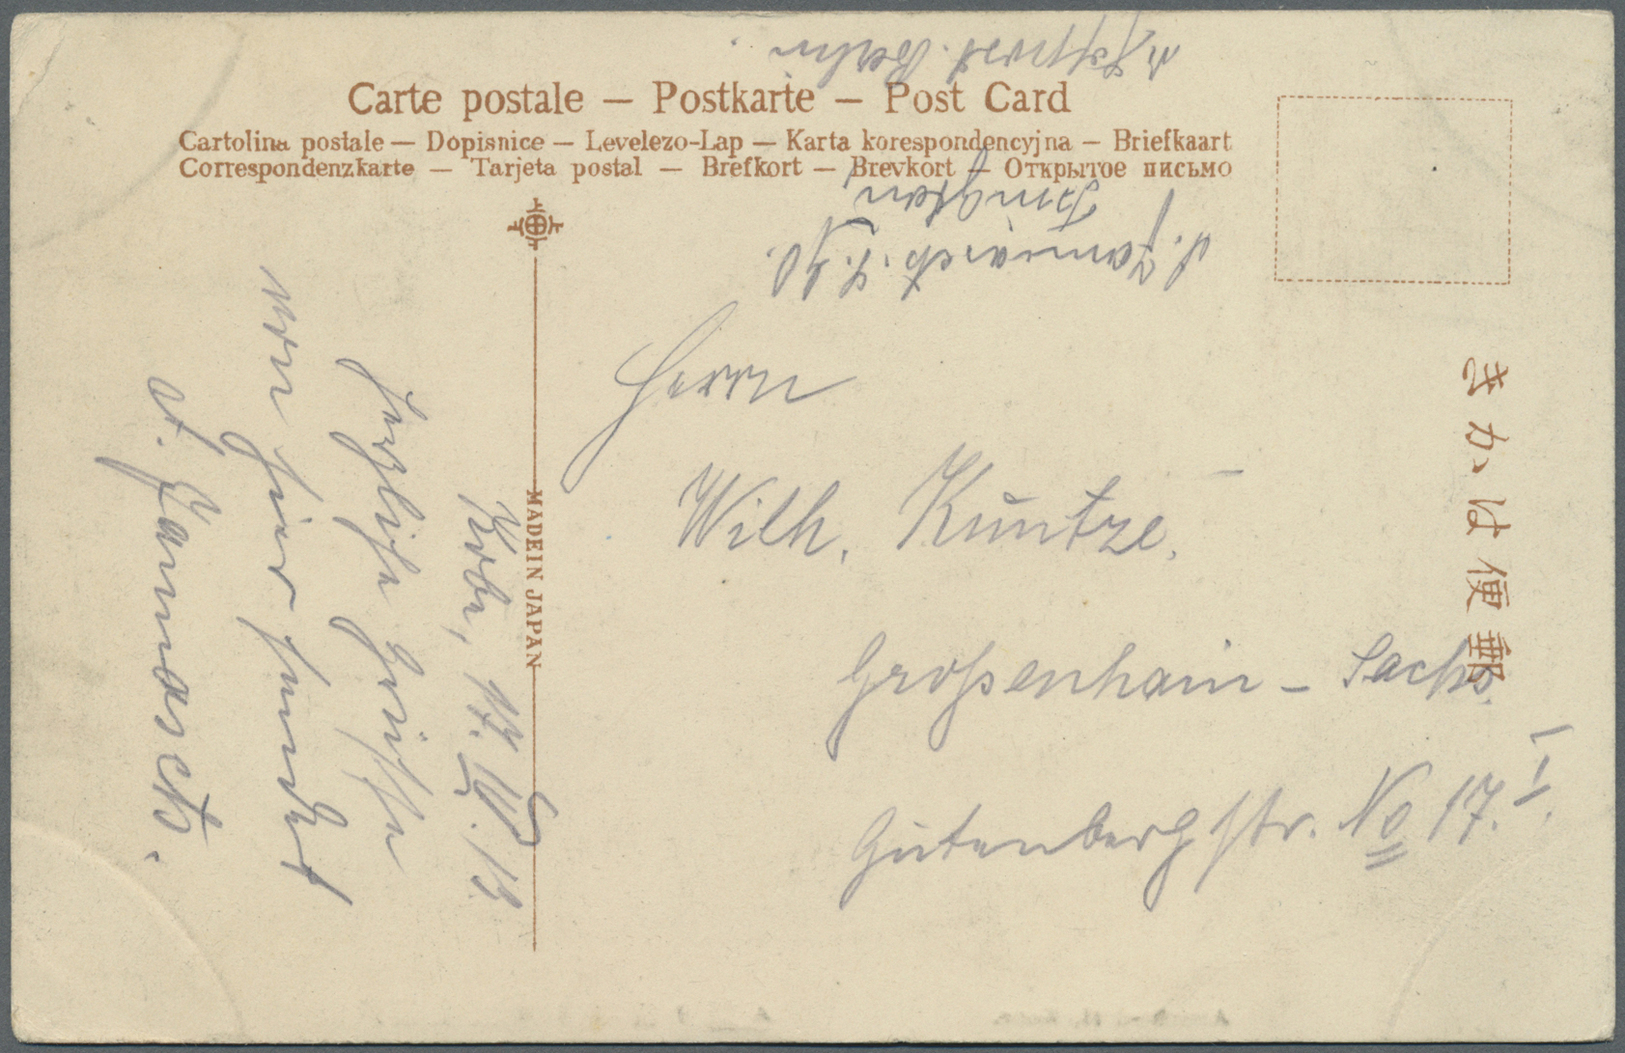 Carte postale — Postkarte — Post Card
Cartolina postale — Dopisnice — Levelezo-Lap — Karta korespondencyjna — Briefkaart
Correspondenzkarte — Tarjeta postal — Brefkort — Brevkort — Открытое письмо
Berlin.
Tsingtau
MADE IN JAPAN
きかは便郵
Herrn
Wilh. Kuntze.
Großenhain – Sachs.
Gutenbergstr. No 17. I.
Kobe, 17. IV. 13.
Herzliche Grüße
von hier sendet